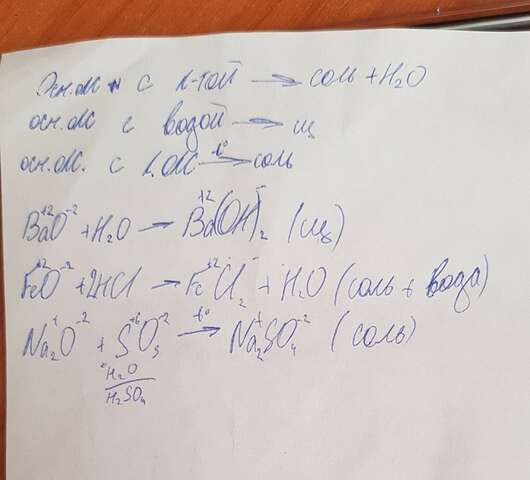 Осн.ОК с к-той → соль + H₂O
осн.ОК с водой → щ
осн.ОК. с к.ОК –t°→ соль
Ba⁺²O⁻² + H₂O → Ba⁺²(OH)⁻₂ (щ)
Fe⁺²O⁻² + 2HCl → Fe⁺²Cl⁻₂ + H₂O (соль + вода)
Na⁺₂O⁻² + S⁺⁶O⁻²₃ –t°→ Na⁺₂SO₄⁻² (соль)
⁺H₂O
H₂SO₄